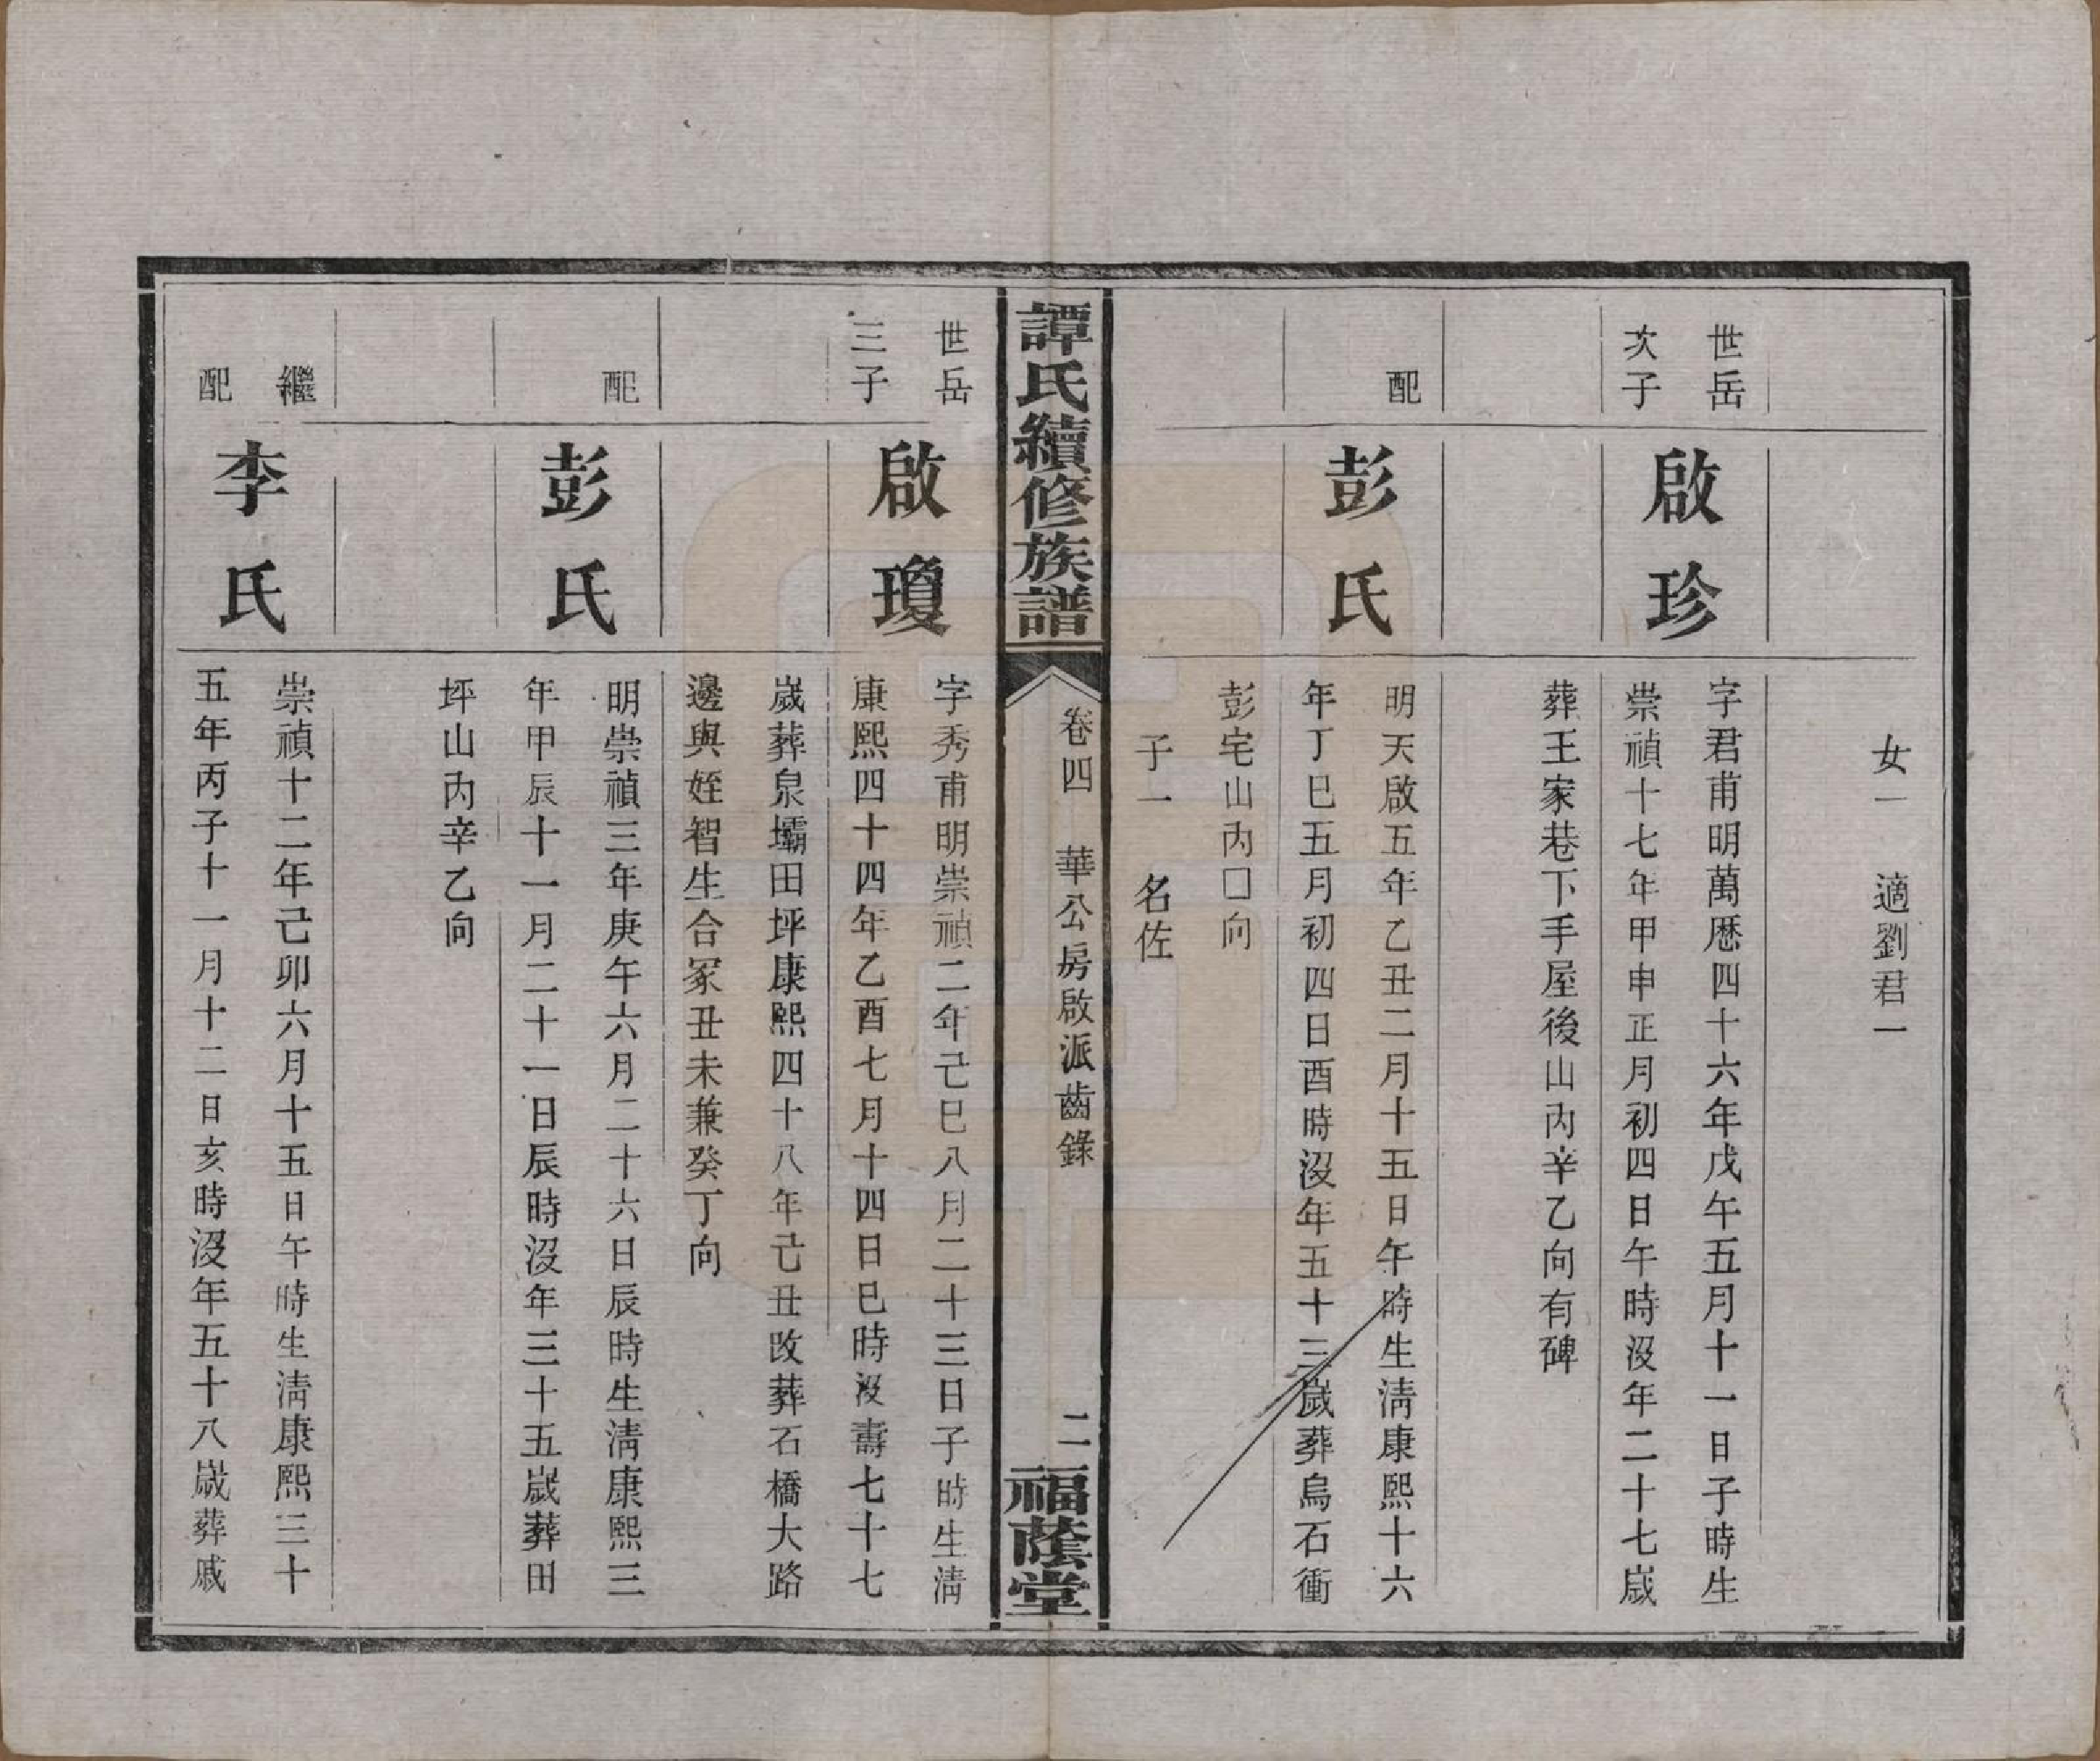 女一　適劉君一
世岳
次子
啟珍
字君甫明萬歷四十六年戊午五月十一日子時生
崇禎十七年甲申正月初四日午時沒年二十七歲
葬王家巷下手屋後山內辛乙向有碑
配
彭氏
明天啟五年乙丑二月十五日午時生清康熙十六
年丁巳五月初四日酉時沒年五十三歲葬烏石衝
彭宅山內囗向
子一　名佐
譚氏續修族譜
卷四　華公房啟派齒錄
二
二福蔭堂
世岳
三子
啟瓊
字秀甫明崇禎二年己巳八月二十三日子時生清
康熙四十四年乙酉七月十四日巳時沒壽七十七
歲葬泉壩田坪康熙四十八年己丑改葬石橋大路
邊與姪智生合冢丑未兼癸丁向
配
彭氏
明崇禎三年庚午六月二十六日辰時生清康熙三
年甲辰十一月二十一日辰時沒年三十五歲葬田
坪山內辛乙向
繼
配
李氏
崇禎十二年己卯六月十五日午時生清康熙三十
五年丙子十一月十二日亥時沒年五十八歲葬戚